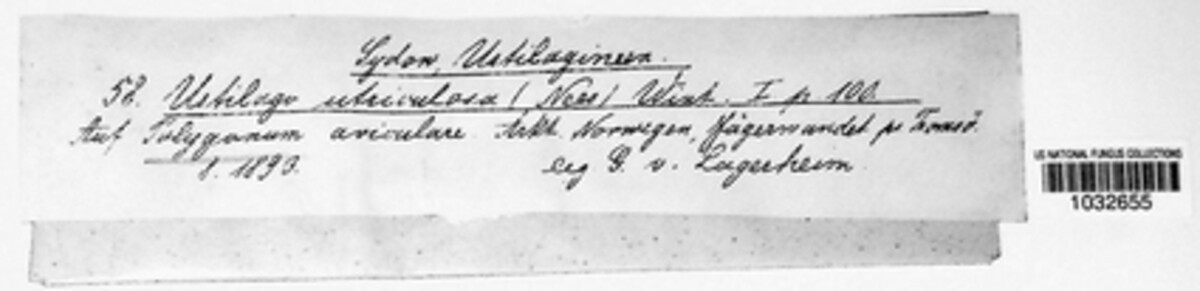 Sydow, Ustilagineen.
58. Ustilago utriculosa (Nees) Wint. I p 100.
Auf Polygonum aviculare. Arkt. Norwegen, Jägervandet pr Tromsö.
8. 1893. leg G. v. Lagerheim.
US NATIONAL FUNGUS COLLECTIONS
1032655